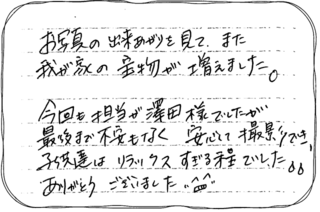 お写真の出来あがりを見て、また
我が家の宝物が増えました。
今回も担当が澤田様でしたが
最後まで不安もなく 安心して撮影でき、
子供達は リラックスすぎる程でした。。
ありがとう ございました。^^